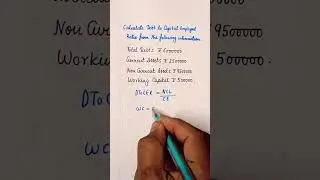 Calculate Debt to Capital Employed
Ratio from the following information
Total Debts ₹ 6000000
Current Assets ₹ 2500000
Non Current Assets ₹ 9500000
Working Capital ₹ 500000
DToCER = NCL
CE
WC =
9500000
500000